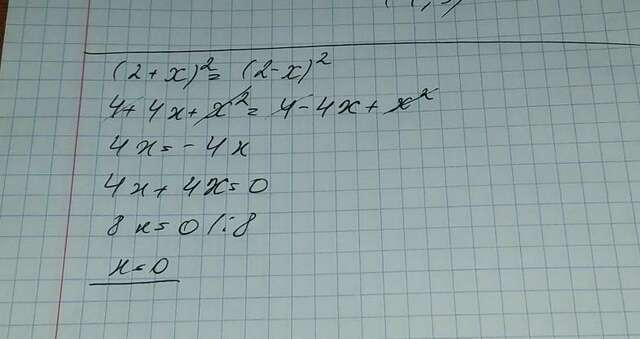 (2+x)²=(2-x)²
4+4x+x²=4-4x+x²
4x=-4x
4x+4x=0
8x=0 /:8
x=0